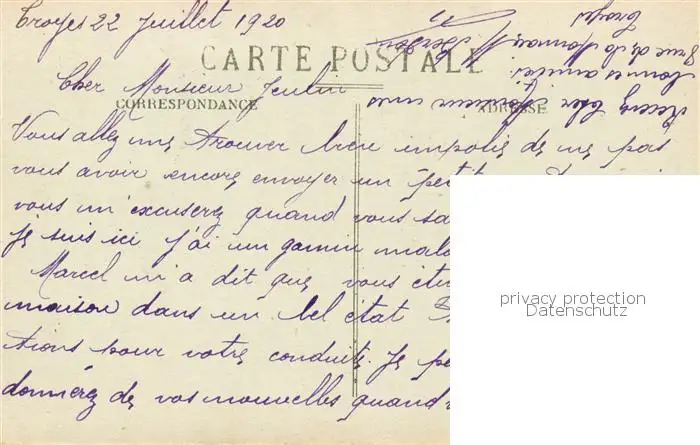 Troyes 22 Juillet 1920
CARTE POSTALE
Cher Monsieur
CORRESPONDANCE
ADRESSE
Vous allez me trouver bien impolie de ne pas
vous avoir encore envoyer un petit
vous m'excuserez quand vous
Je suis ici j'ai un gamin
Marcel m'a dit que vous
maison dans un bel état
tions pour votre conduite. Je
donnerez de vos nouvelles quand
Recevez Cher Monsieur mes
bonnes amitiés
rue de la Monnaie
Troyes
privacy protection
Datenschutz